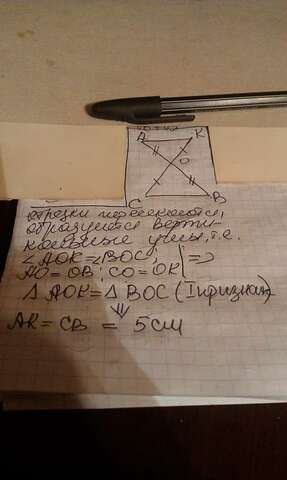 A K
O
C B
отрезки пересекаются,
образуются верти-
кальные углы, т.е.
∠AOK=∠BOC;
AO=OB; CO=OK | =>
△ AOK = △ BOC (I признак)
⇓
AK = CB = 5 см